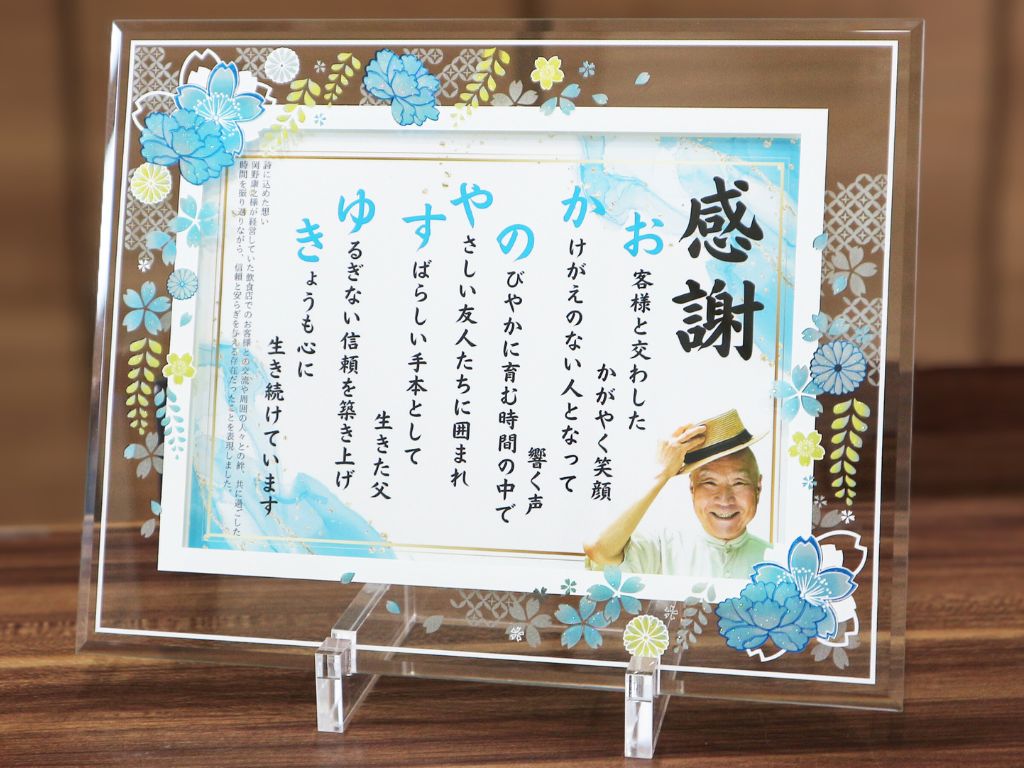 感謝
お客様と交わした
かがやく笑顔
かけがえのない人となって
のびやかに育む時間の中で
響く声
やさしい友人たちに囲まれ
すばらしい手本として
生きた父
ゆるぎない信頼を築き上げ
きょうも心に
生き続けています
詩に込めた想い
岡野康之様が経営していた飲食店でのお客様との交流や周囲の人々との絆、共に過ごした
時間を振り返りながら、信頼と安らぎを与える存在だったことを表現しました。